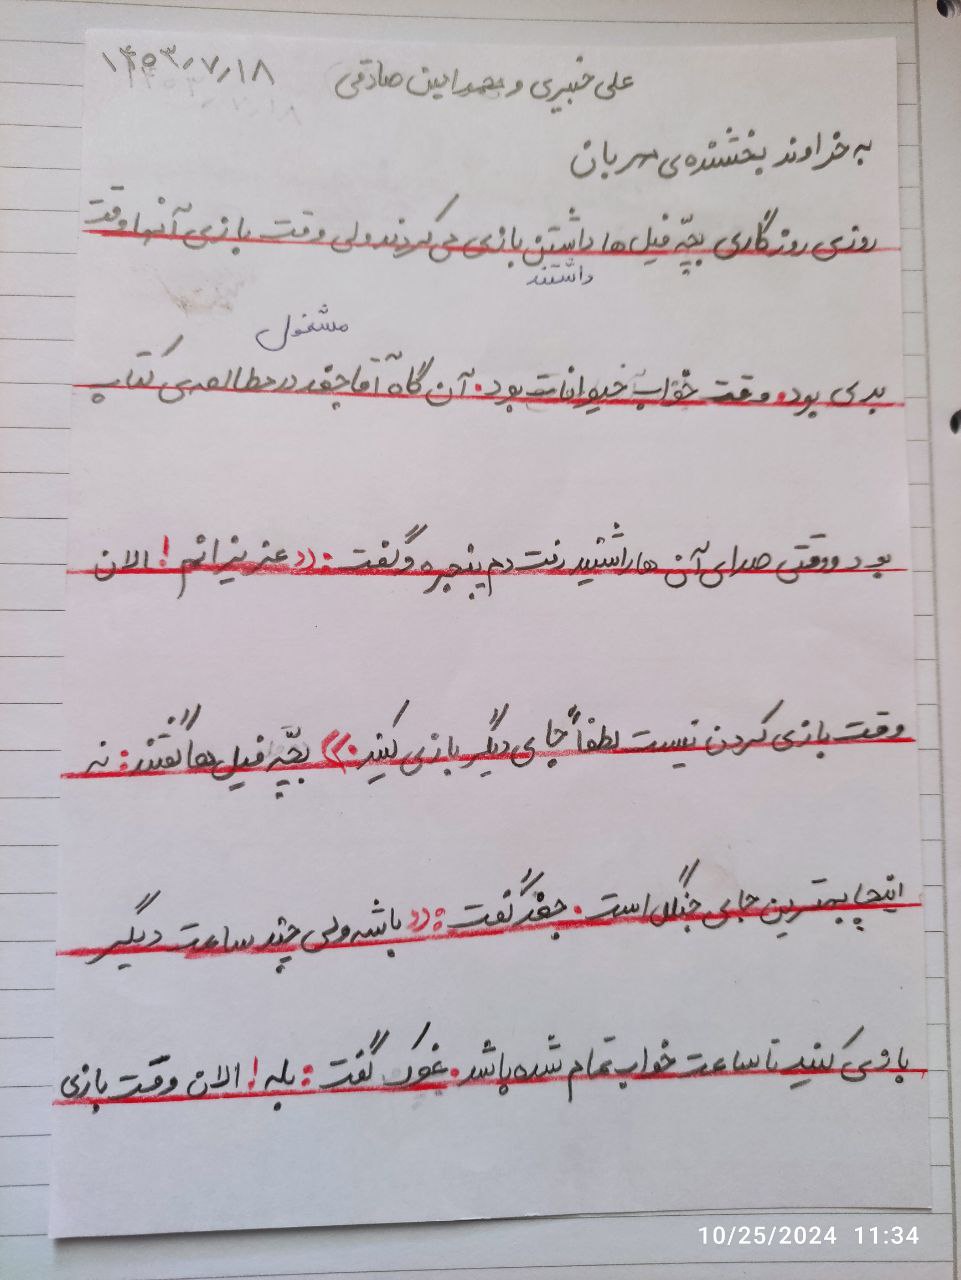 ۱۴۰۳٫۷٫۱۸
علی خبیری و محمد امین صادقی
به خداوند بخشنده‌ی مهربان
روزی روزگاری بچّه فیل ها داشتن بازی می کردند ولی وقت بازی آنها وقت
داشتند
مشغول
بدی بود. وقت خواب حیوانات بود. آن گاه آقا جغد در مطالعه‌ی کتاب
بود و وقتی صدای آن ها را شنید رفت دم پنجره و گفت: «عزیزانم! الان
وقت بازی کردن نیست لطفاً جا ی دیگر بازی کنید.» بچّه فیل ها گفتند: نه
اینجا بهترین جای جنگل است. جغد گفت: «باشه ولی چند ساعت دیگر
بازی کنید تا ساعت خواب تمام شده باشد. غوک گفت: بله! الان وقت بازی
10/25/2024 11:34